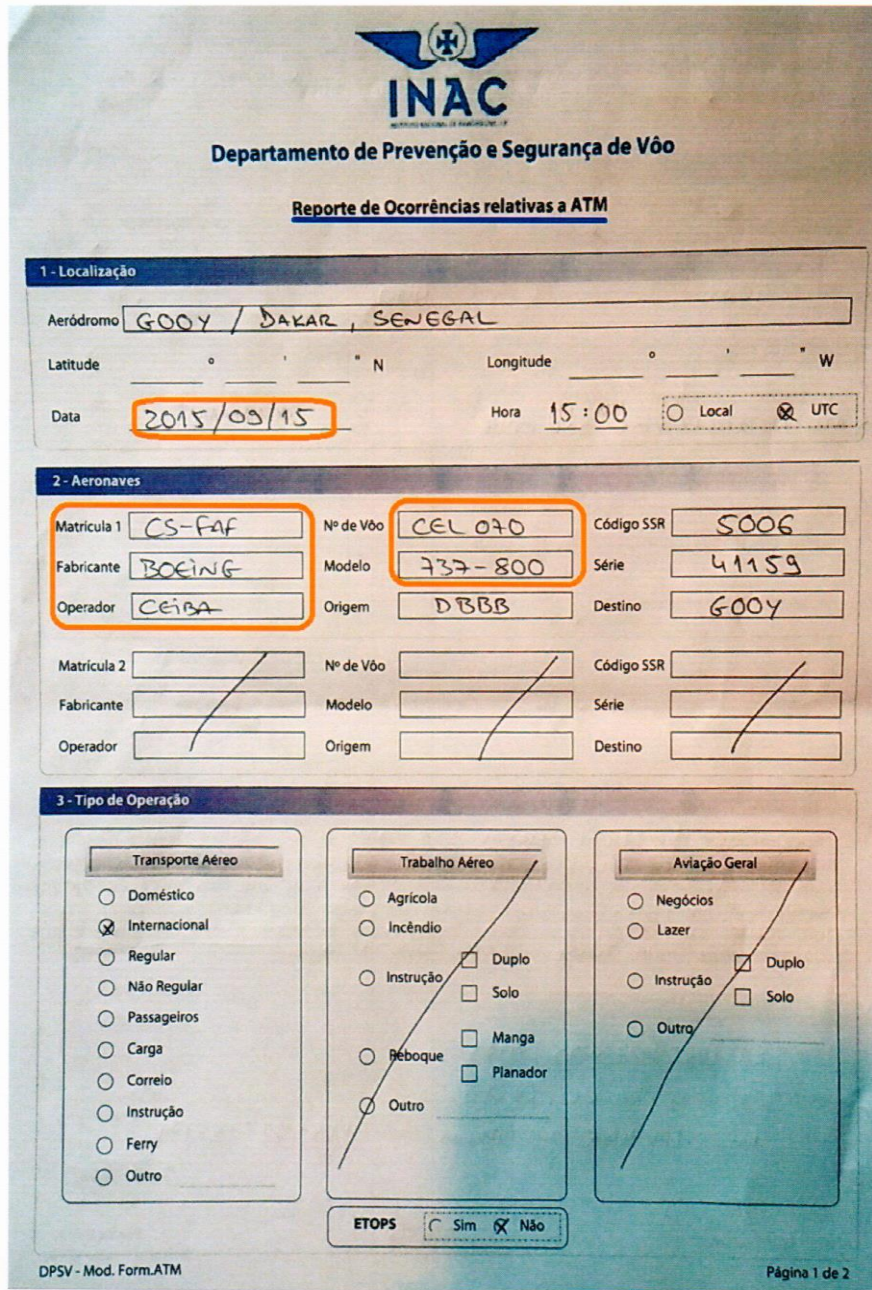 INAC
Departamento de Prevenção e Segurança de Vôo
Reporte de Ocorrências relativas a ATM
1 - Localização
Aeródromo GOOY / DAKAR, SENEGAL
Latitude ° ' " N Longitude ° ' " W
Data 2015/09/15 Hora 15:00 Local UTC
2 - Aeronaves
Matrícula 1 CS-FAF Nº de Vôo CEL 070 Código SSR 5006
Fabricante BOEING Modelo 737-800 Série 41159
Operador CEIBA Origem DBBB Destino GOOY
Matrícula 2 Nº de Vôo Código SSR
Fabricante Modelo Série
Operador Origem Destino
3 - Tipo de Operação
Transporte Aéreo
Doméstico
Internacional
Regular
Não Regular
Passageiros
Carga
Correio
Instrução
Ferry
Outro
Trabalho Aéreo
Agrícola
Incêndio
Instrução
Duplo
Solo
Reboque
Manga
Planador
Outro
Aviação Geral
Negócios
Lazer
Instrução
Duplo
Solo
Outro
ETOPS Sim Não
DPSV - Mod. Form.ATM Página 1 de 2